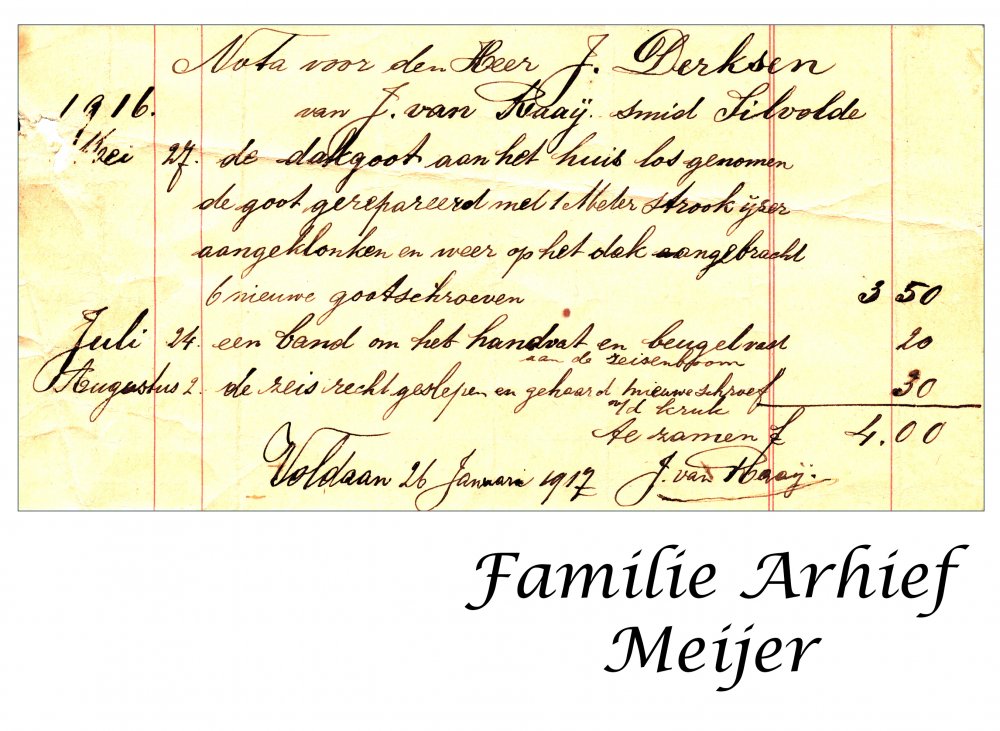 Nota voor den Heer J. Derksen
1916. van J. van Raaij. smid Silvolde
Mei 27. de dakgoot aan het huis los genomen
de goot gerepareerd met 1 Meter strook ijzer
aangeklonken en weer op het dak aangebracht
6 nieuwe gootschroeven 3 50
Juli 24. een band om het handvat en beugel vast 20
aan de zeisenboom
Augustus 2. de zeis recht geslepen en gehaard 1 nieuwe schroef 30
a/d kruk
te zamen f 4.00
Voldaan 26 Januari 1917 J. van Raaij.
Familie Arhief
Meijer